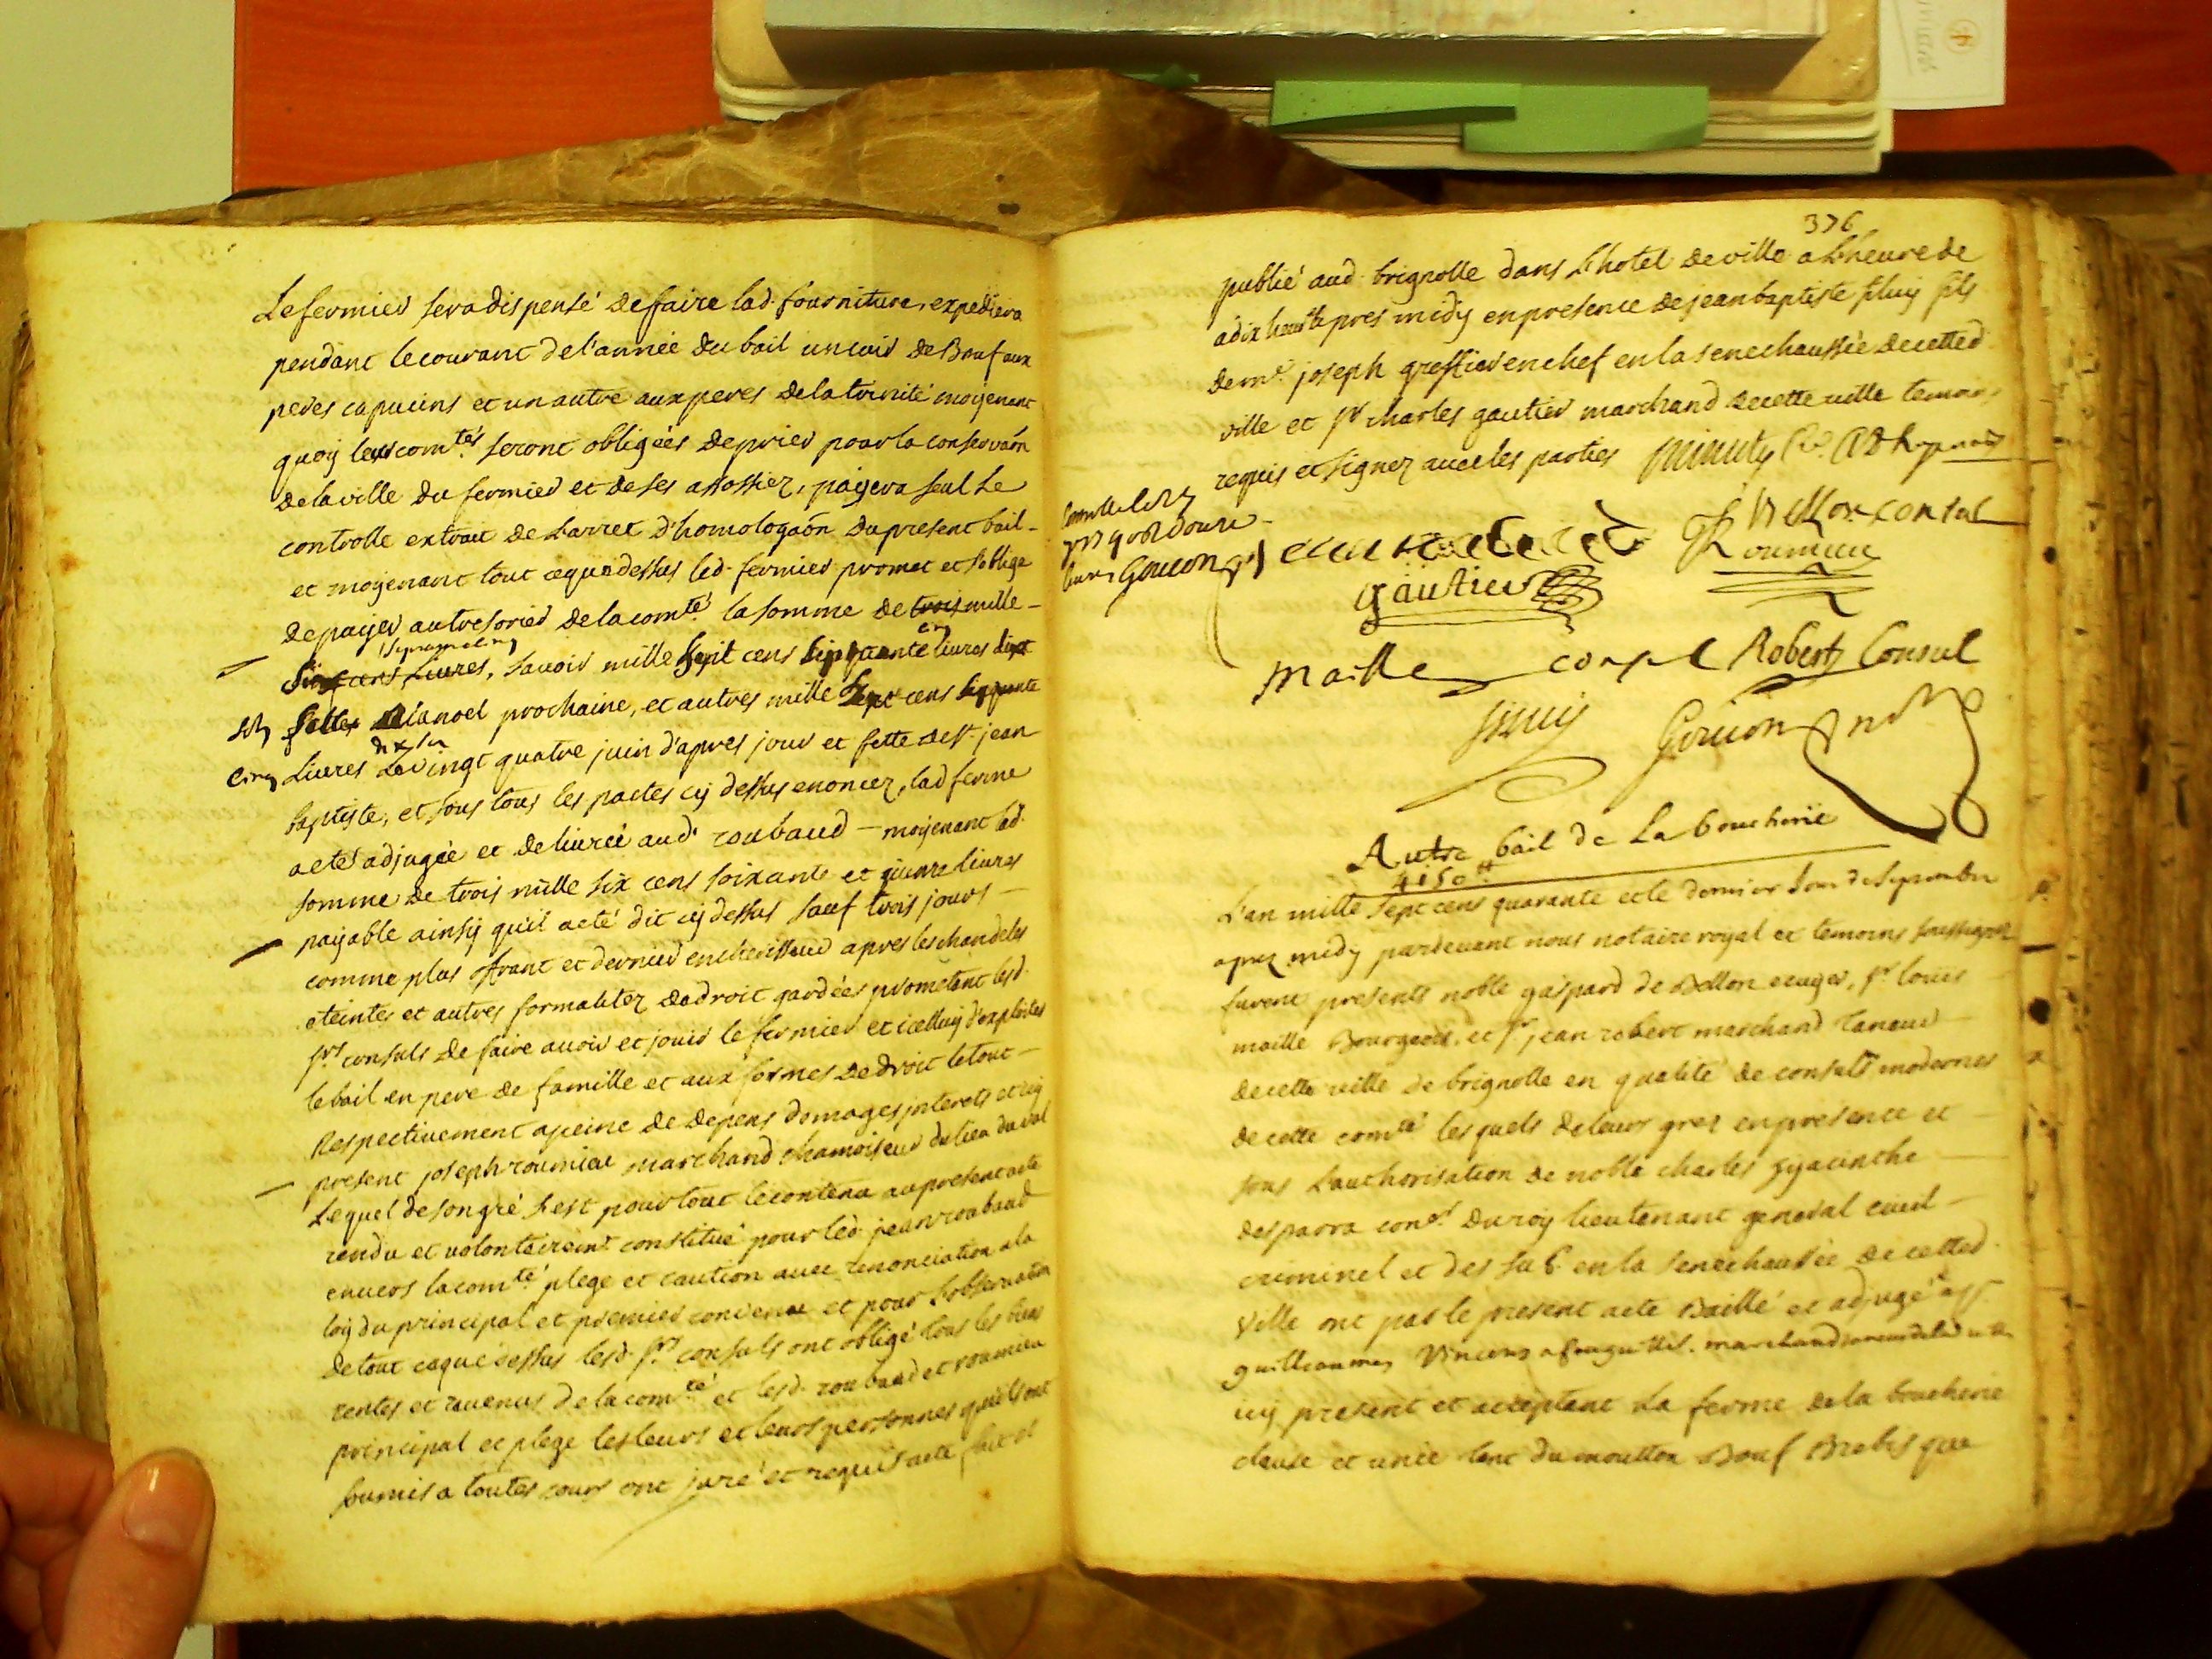 Le fermier sera dispensé de faire lad. fourniture, expediera
pendant le courant de l'année du bail un cuir de Bœuf aux
peres capucins et un autre aux peres de la trinité moyenant
quoy leurs com.tés seront obligées de prier pour la conservaõn
de la ville du fermier et de ses assossiez, payera seul Le
controlle extrait de L'arret d'homologaõn du present bail -
et moyenant tout ce que dessus led. fermier promet et s'oblige
de payer au tresorier de la com.té la somme de trois mille -
livres, savoir mille sept cens cinquante livres
festes la noel prochaine, et autres mille sept cens
cinq Livres Le vingt quatre juin d'apres jour et feste de st. jean
baptiste, et sous tous les pactes cy dessus enoncez, lad ferme
a eté adjugée et delivrée aud. roubaud - moyenant lad.
somme de trois mille six cens soixante et quinze livres
payable ainsy qu'il a eté dit cy dessus sauf trois jours -
comme plus ofrant et dernier encherisseur apres les chandeles
eteintes et autres formalitez de droit gardées prometant lesd.
srs consuls de faire avoir et jouir le fermier et icelluy d'exploiter
le bail en pere de famille et aux formes de droit le tout -
Respectivement a peine de depens domages interets et icy
present joseph roumieu marchand chamoiseur du lieu du val
Lequel de son gré s'est pour tout le contenu au present acte
rendu et volontairemt constitué pour led. jean roubaud
envers la com.té plege et caution avec renonciation a la
loy du principal et premier convenu et pour l'observation
de tout ce que dessus lesd. srs consuls ont obligé tous les biens
rentes et revenus de la com.té et lesd. roubaud et roumieu
principal et plege les leurs et leurs personnes qu'ils ont
soumis a toutes cours ont juré et requis acte fait et
376
publié aud. brignolle dans L'hotel de ville a L'heure de
a dix heures apres midy en presence de jean baptiste fils
de me. joseph greffier en chef en la senechaussée de cetted.
ville et sr charles gautier marchand de cette ville temoins
requis et signez avec les parties
Bellon consul
Roumieu
gautier
Maille consul Robert Consul
Goujon
Autre bail de La boucherie
4150 tt
L'an mille sept cens quarante et le dernier Jour de Septembre
apres midy pardevant nous notaire royal et temoins soussignez
furent presents noble gaspard de Bellon ecuyer, sr. louis
maille Bourgeois, et sr. jean robert marchand taneur -
de cette ville de brignolle en qualité de consuls modernes
de cette com.té lesquels de leurs grez en presence et -
sous L'authorisation de noble charles hyacinthe -
desparra cons.er du roy lieutenant general civil -
criminel et des sub. en la senechaussée de cetted.
Ville ont par le present acte Baillé et adjugé
guilleaumes Vincens marchand
icy present et acceptant La ferme de la boucherie
clause et unie tant du moutton Bœuf Brebis que